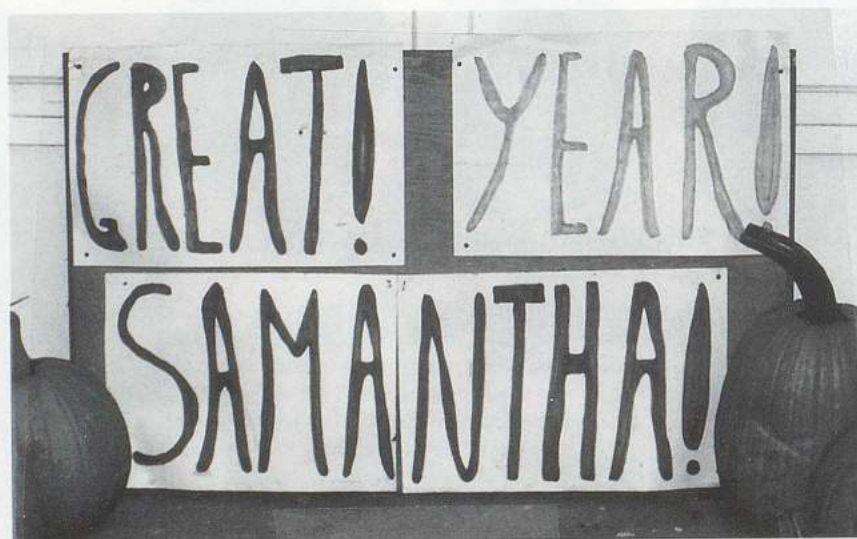 GREAT! YEAR!
SAMANTHA!